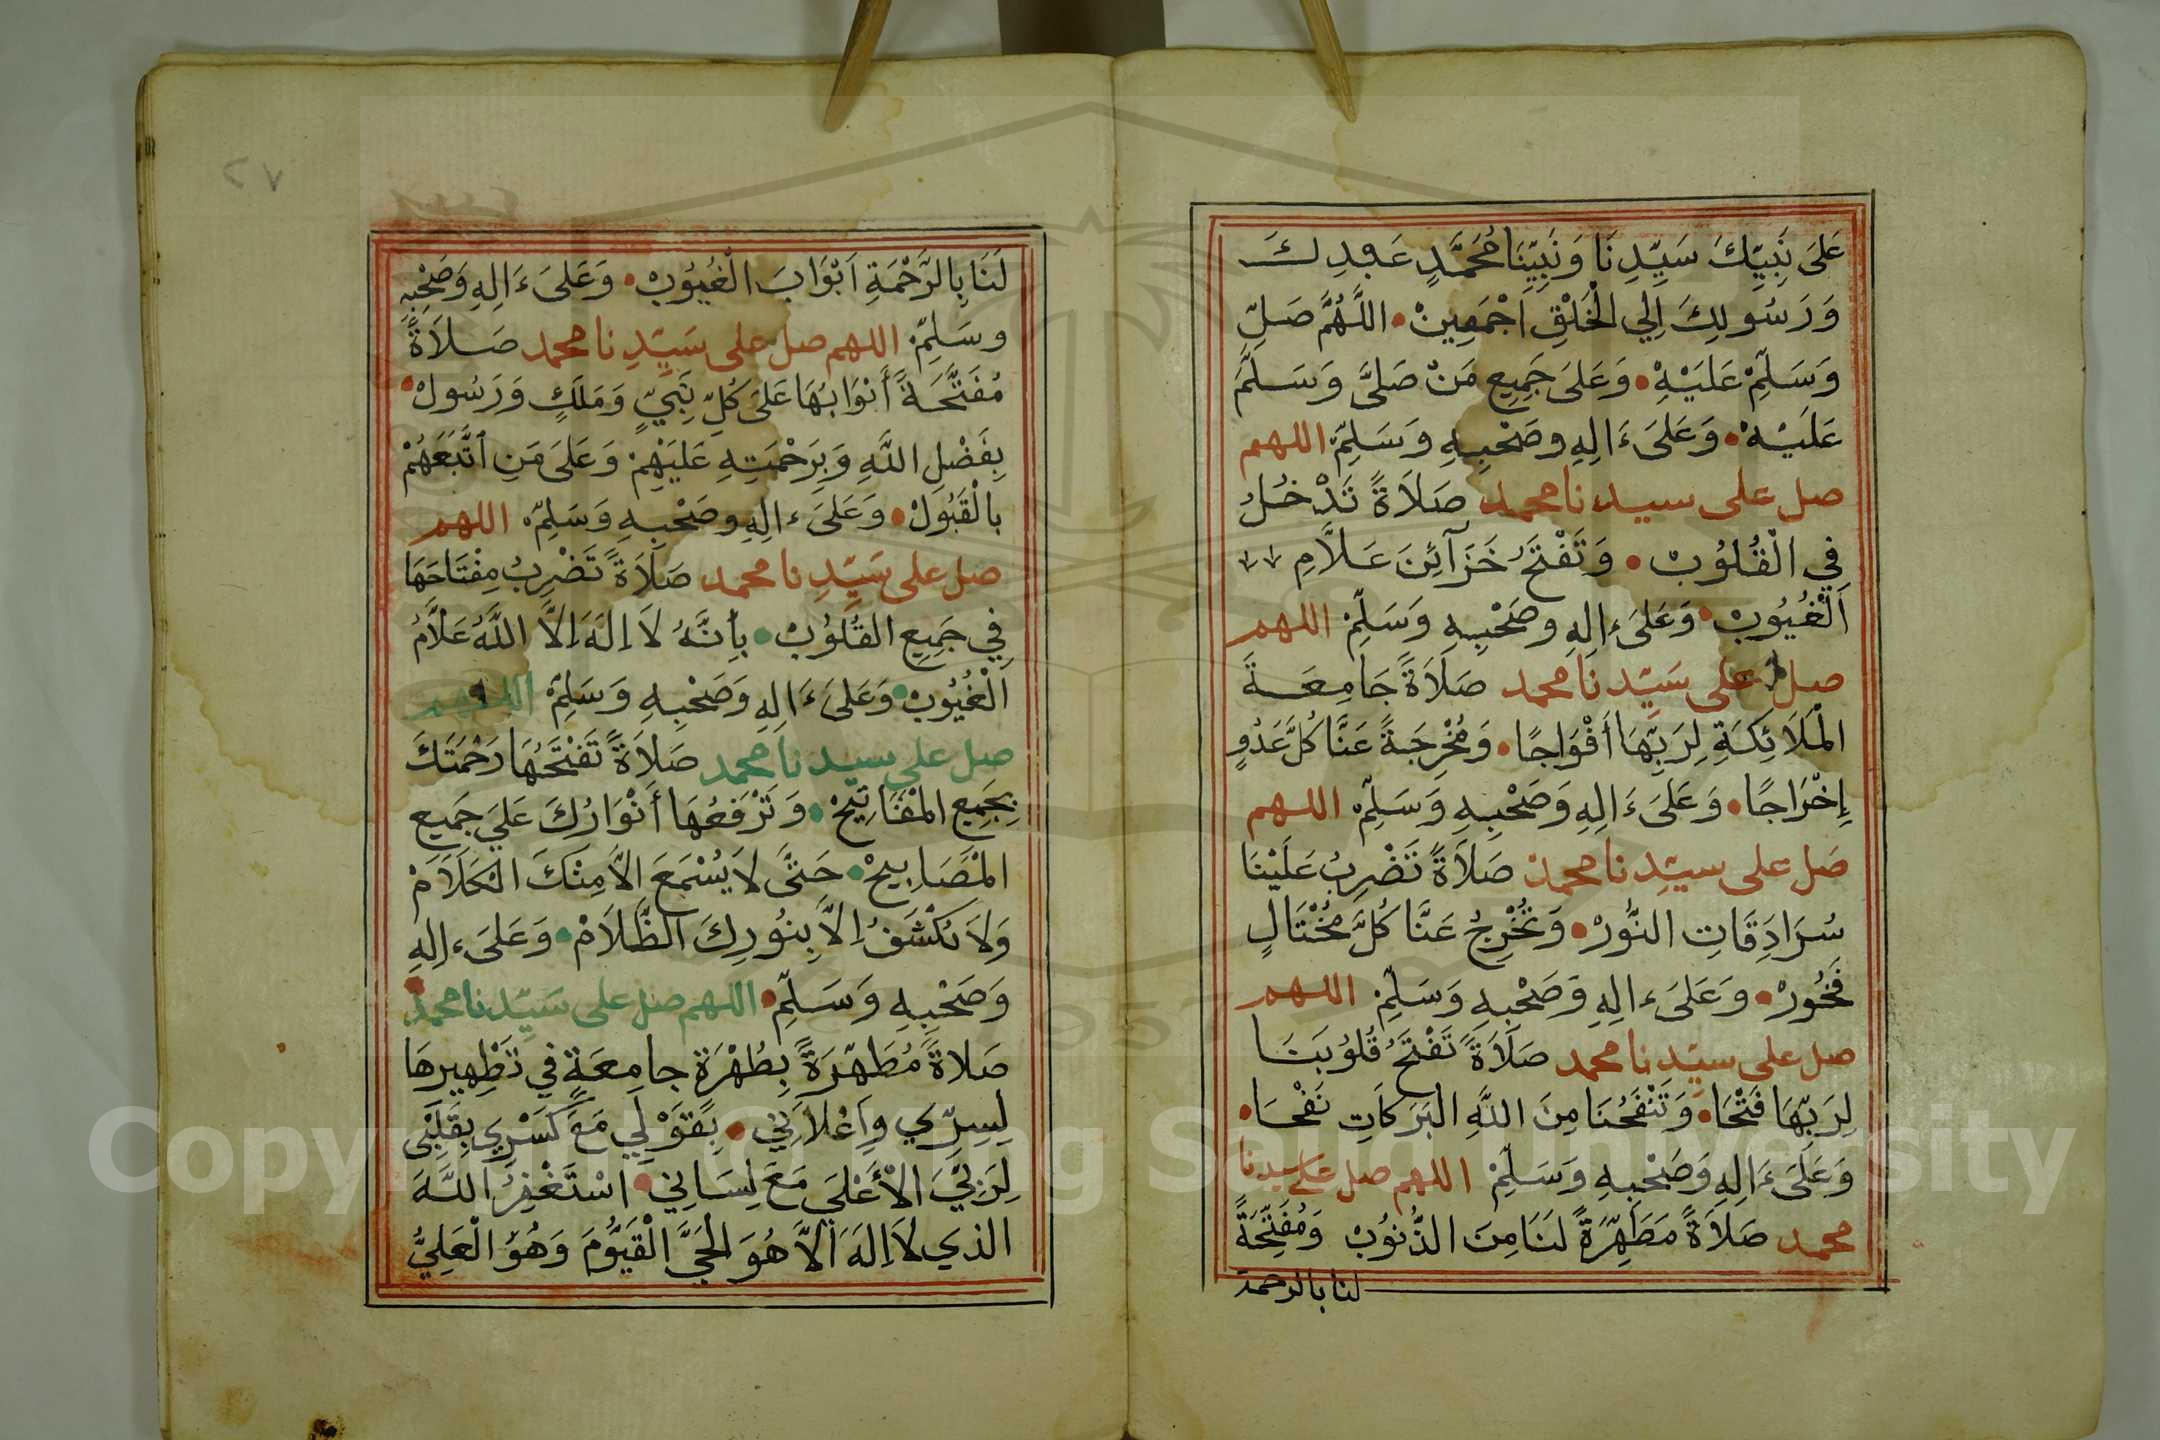 عَلَى نَبِيِّكَ سَيِّدِنَا وَنَبِيِّنَا مُحَمَّدٍ عَبْدِكَ
وَرَسُولِكَ اِلِي الْخَلْقِ اَجْمَعِينْ • اللَّهُمَّ صَلِّ
وَسَلِّمْ عَلَيْهِْ • وَعَلَى جَمِيعِ مَنْ صَلَّى وَسَلَّمَ
عَلَيْهْ • وَعَلَىَ ءَالِهِ وصَحْبِهِ وَسَلِّمْ اللهم
صل على سيدنا محمد صَلَاةً تَدْخُلُ
فِي الْقُلُوُبْ • وَتَفْتَحُ خَزَآئِنَ عَلَّامِ
اَلْغُيُوُبْ • وَعَلَىَ ءالِهِ وصَحْبِهِ وَسَلِّمْ اللهم
صل على سَيّدنَا محمد صَلَاةً جَامِعَةَ
الْمَلَائِكَةِ لِرَبِّهَا أَفْوَاجًا • وَمُخْرِجَةً عَنَّا كُلَّ عَدُوٍ
إِخْرَاجًا • وَعَلَىَ ءَالِهِ وَصَحْبِهِ وَسَلِّمْ اللهم
صَل على سيّدِنا محمد صَلَاةً تَضْرِبُ عَلَيْنَا
سُرَادِقَاتِ النُّوُرْ • وَتُخْرِجُ عَنَّا كُلَّ مُخْتَالٍ
فَخُوُرْ • وَعَلَىَ ءالِهِ وَصَحْبِهِ وَسَلِّمْ اللهم
صل على سيّدِنا محمد صَلَاةً تَفْتَحُ قُلُوبَنَا
لِرَبِّهَا فَتْحَا • وَتَنْفَحُنَا مِنَ اللَّهِ البَرَكَاتِ نَفْحَا •
وَعَلَىَ ءَالِهِ وَصَحْبِهِ وَسَلِّمْ اللهم صل على سيدنا
محمد صَلَاةً مَطَهِّرَةً لَنَا مِنَ الذُّنوُبْ وَمُفَتِّحَةً
لنا بالرحمة
٢٧
لَنَا بِالرَّحْمَةِ اَبْوَابَ الْغُيُوُبْ • وَعَلَىَ ءَالِهِ وَصَحْبِهِ
وسَلِّمْ اللهم صل على سَيّدِنا محمد صَلَاةً
مُفَتَّحَةً أَبْوَابُهَا عَلَى كُلِّ نَبِيٍّ وَمَلَكٍ وَرَسُولْ •
بِفَضْلِ اللَّهِ وَبِرَحْمَتِهِ عَلَيْهِمْ وَعَلَىَ مَنِ اتَّبَعَهُمْ
بالْقَبُوَلْ • وَعَلَىَ ءالِهِ وصَحْبِهِ وَسَلِّمْ اللهم
صل على سَيّدِنا محمد صَلَاةً تَضْرِبُ مِفْتَاحَهَا
فِي جَمِيعِ القُلوُبْ • بِأَنَّهُ لَا اِلَهَ اِلَّا اللَّهُ عَلَّامُ
الْغُيُوُبْ • وَعَلَىَ ءَالِهِ وَصَحْبِهِ وَسَلِّمْ اللهم
صل على سيدنا محمد صَلَاةً تَفْتَحُهَا رَحْمَتَكَ
بِجَمِيعِ الْمَفَاتِيحْ • وَتَرْفَعُهَا أَنْوَارُكَ عَلَي جَمِيع
الْمَصَابِيحْ • حَتَّى لَا يُسْمَعَ الَّا مِنْكَ الكَلَامْ
وَلَا يَكْشَفُ اِلَّا بِنُورِكَ الظَّلَامْ • وَعَلَىَ ءالِهِ
وَصَحْبِهِ وَسَلِّمْ • اللهم صل على سَيّدنا محمد
صَلاةً مُطَهِّرَةً بِطُهْرَةٍ جامِعَةٍ فِي تَطْهِيرِهَا
لِسِرِّي وَاِعْلَانِي • بِقَوْلِي مَعَ كَسْرِي بِقَلْبِي
لِرَبِّيَ الْأَعْلَى مَعَ لِسَانِي • اَسْتَغْفِرُ اللَّهَ
الذي لَا اِلَهَ اَلَّا هُوَ الْحَيَّ الْقَيُّومَ وَهُوَ الْعَلِيُّ
Copyright © King Saud University